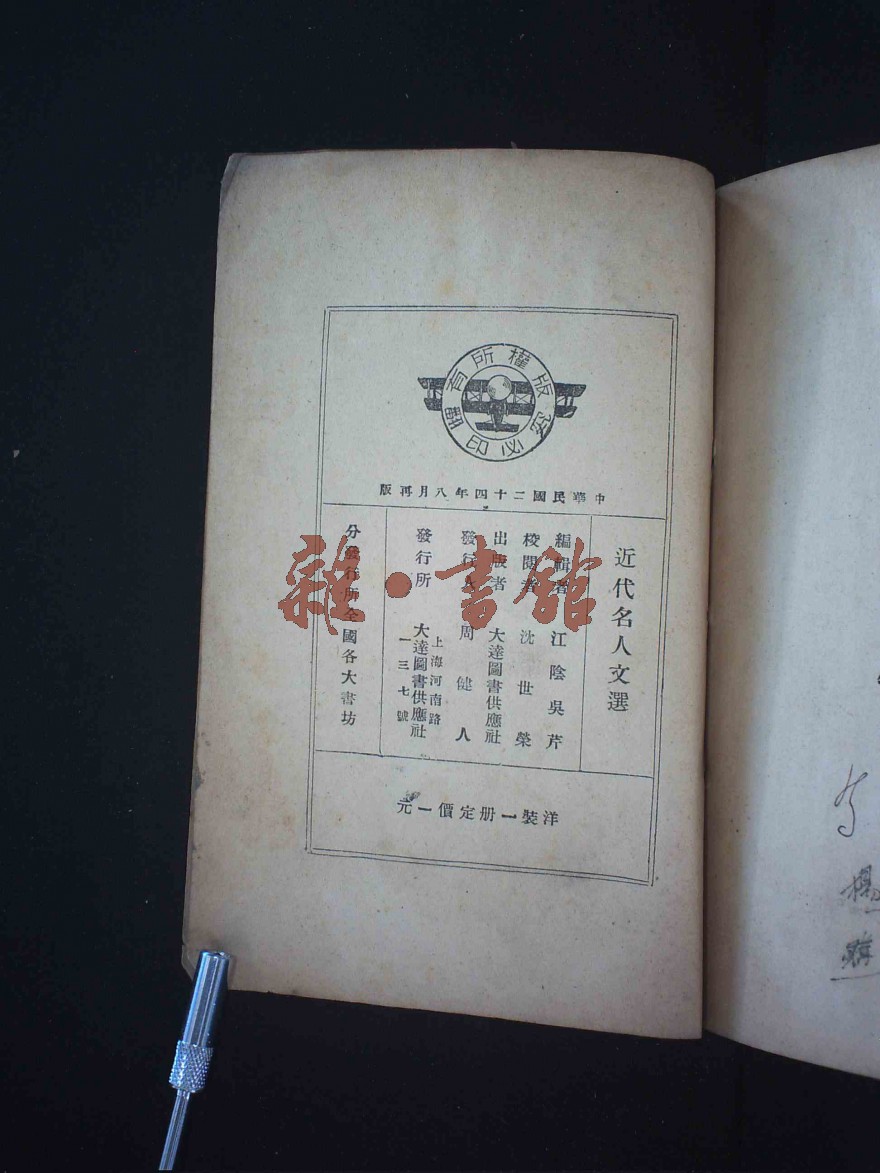 版權所有
翻印必究
中華民國二十四年八月再版
近代名人文選
編輯者 江陰吳芹
校閱者 沈世榮
出版者 大達圖書供應社
發行人 周健人
發行所 大達圖書供應社
上海河南路
一三七號
分發行所全國各大書坊
洋裝一册定價一元
雜·書館